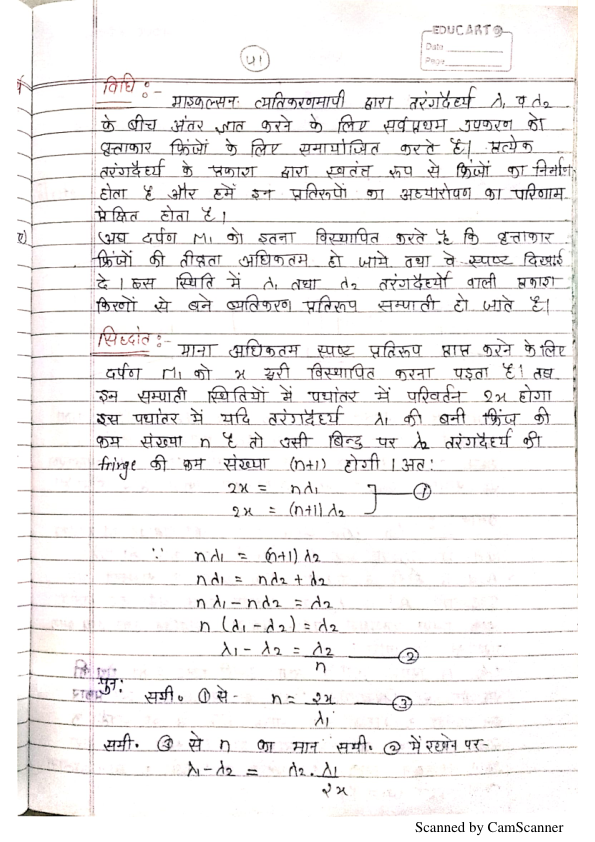 EDUCART
Date
Page
41
विधि :-
माइकल्सन व्यतिकरणमापी द्वारा तरंगदैर्ध्य λ1 व λ2
के बीच अंतर ज्ञात करने के लिए सर्वप्रथम उपकरण को
वृत्ताकार फ्रिंजों के लिए समायोजित करते है। प्रत्येक
तरंगदैर्ध्य के प्रकाश द्वारा स्वतंत्र रूप से फ्रिंजों का निर्माण
होता है और हमें इन प्रतिरूपों का अध्यारोपण का परिणाम
प्रेक्षित होता है।
अब दर्पण M1 को इतना विस्थापित करते है कि वृत्ताकार
फ्रिंजों की तीव्रता अधिकतम हो जाये तथा वे स्पष्ट दिखाई
दे। इस स्थिति में λ1 तथा λ2 तरंगदैर्ध्यो वाली प्रकाश
किरणों से बने व्यतिकरण प्रतिरूप सम्पाती हो जाते है।
सिद्धांत :-
माना अधिकतम स्पष्ट प्रतिरूप प्राप्त करने के लिए
दर्पण M1 को x दूरी विस्थापित करना पड़ता है। तब
इन सम्पाती स्थितियों में पथांतर में परिवर्तन 2x होगा
इस पथांतर में यदि तरंगदैर्ध्य λ1 की बनी फ्रिंज की
क्रम संख्या n है तो उसी बिन्दु पर λ2 तरंगदैर्ध्य की
fringe की क्रम संख्या (n+1) होगी। अत:
2x = nλ1
2x = (n+1) λ2 — ①
∵ nλ1 = (n+1) λ2
nλ1 = nλ2 + λ2
nλ1 - nλ2 = λ2
n (λ1 - λ2) = λ2
λ1 - λ2 = λ2/n — ②
पुन:
समी. ① से- n = 2x/λ1 — ③
समी. ③ से n का मान समी. ② में रखने पर-
λ1-λ2 = λ2.λ1/2x
Scanned by CamScanner